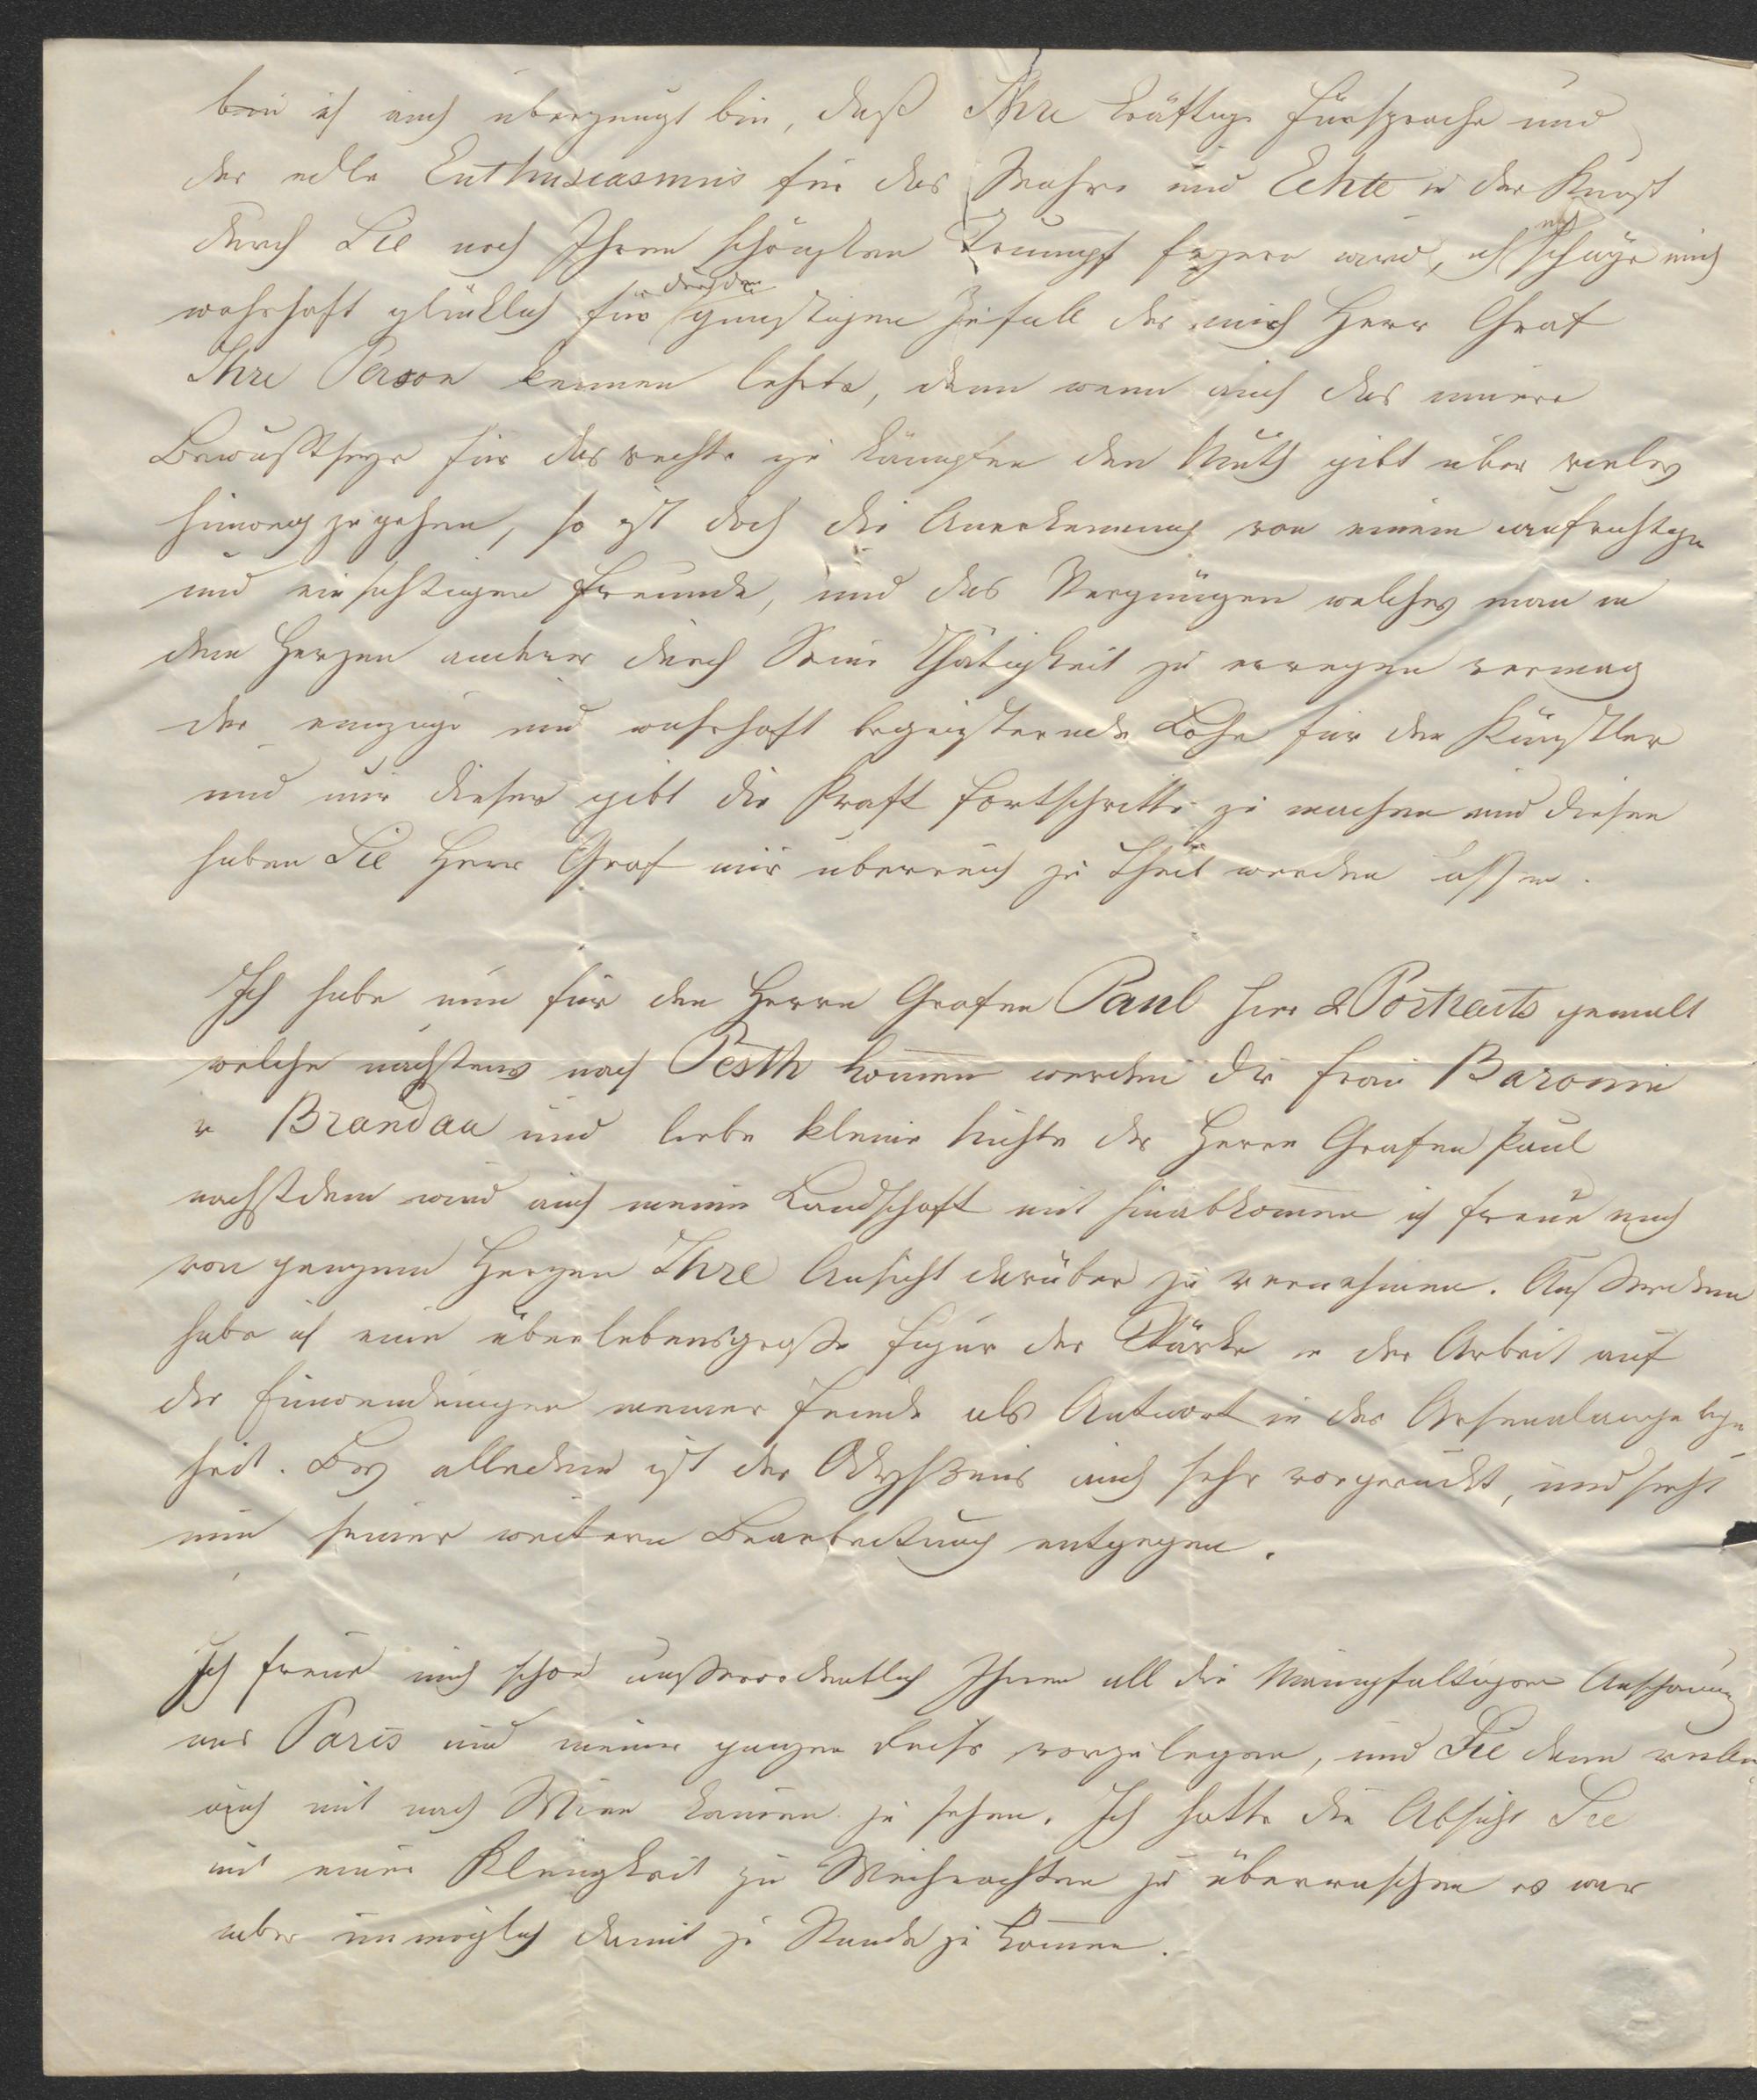 bin ich auch überzeugt bin, daß Ihre kräftige Fürsprache und
der edle Enthusiasmus für das Wahre und Echte in der Kunst
durch Sie noch Ihren schönsten Triumpf feyern wird, ich schäze mich
wahrhaft glücklich für den günstigen Zufall der mich Herr Graf
Ihre Person kennen lehrte, denn wenn auch das innere
Bewußtseyn für das rechte zu kämpfen den Muth gibt über vieles
hinweg zu gehen, so ist doch die Anerkennung von einem aufrichtigen
und einsichtigen Freunde, und das Vergnügen welches man in
dem Herzen anderer durch Seine Thätigkeit zu erregen vermag
der einzige und wahrhaft begeisternde Lohn für den Künstler
und nur dieser gibt die Kraft Fortschritte zu machen und diesen
haben Sie Herr Graf mir überreich zu Theil werden lassen.
Ich habe nun für den Herrn Grafen Paul hier 2 Portraits gemalt
welche nächstens nach Pesth kommen werden die Frau Baronin
v Brandau und liebe kleine Nichte des Herrn Grafen Paul
nächstdem wird auch meine Landschaft mit hinabkommen ich freue mich
von ganzem Herzen Ihre Ansicht darüber zu vernehmen. Außerdem
habe ich eine überlebensgroße Figur der Stärke in der Arbeit auf
die Einwendungen meiner Feinde als Antwort in der Arsenalangelegen
heit. Bey alledem ist der Odyßeus auch sehr vorgerückt, und sieht
nun seiner weitern Bearbeitung entgegen.
Ich freue mich schon außerordentlich Ihnen all die Mannigfaltigen Anschauung
aus Paris und meiner ganzen Reise vorzulegen, und Sie dann
auch mit nach Wien kommen zu sehen. Ich hatte die Absicht Sie
mit einer Kleinigkeit zu Weihnachten zu überraschen es war
aber unmöglich damit zu Stande zu kommen.